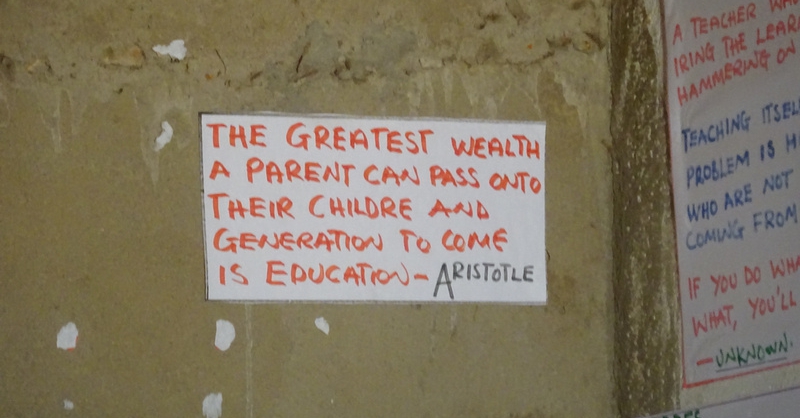 THE GREATEST WEALTH
A PARENT CAN PASS ONTO
THEIR CHILDRE AND
GENERATION TO COME
IS EDUCATION - ARISTOTLE
A TEACHER
THE
HAMMERING ON
TEACHING
PROBLEM IS
WHO ARE NOT
COMING FROM
IF YOU DO
WHAT, YOU'LL
- UNKNOWN.